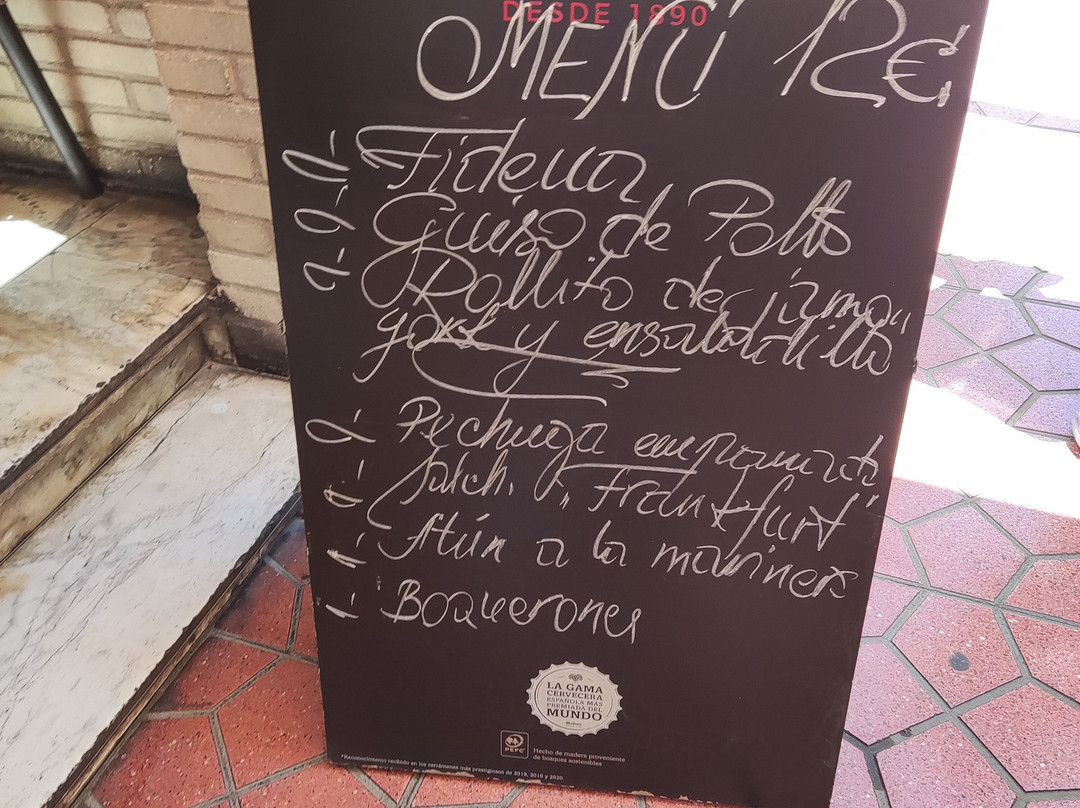 DESDE 1890
MENÚ 12€
- Fideua
- Guiso de Pollo
- Rollito de jamon
york y ensaladilla
- Pechuga empanada
- Salch. "Frankfurt"
- Atún a la marinera
- Boquerones
LA GAMA
CERVECERA
ESPAÑOLA MÁS
PREMIADA DEL
MUNDO
PEFC
Hecho de madera proveniente
de bosques sostenibles
*Reconocimiento recibido en los certámenes más prestigiosos de 2018, 2019 y 2020.